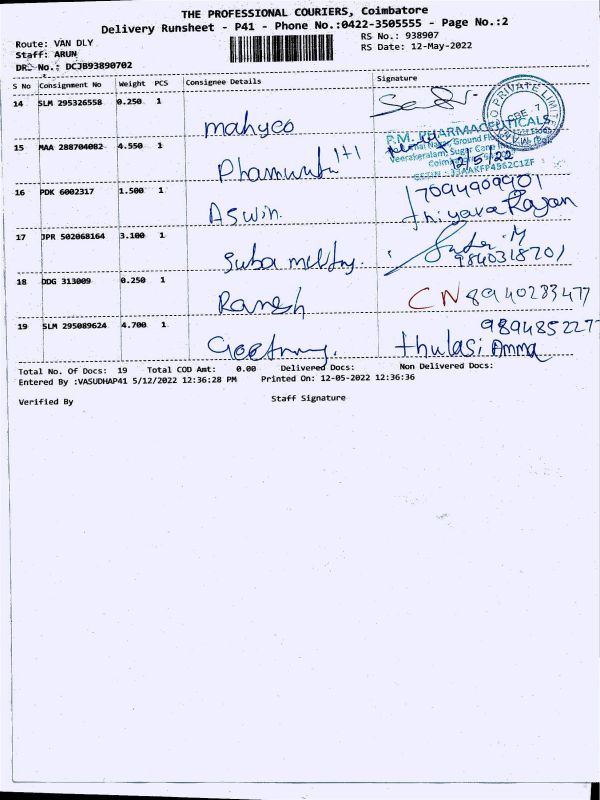 THE PROFESSIONAL COURIERS, Coimbatore
Delivery Runsheet - P41 - Phone No.:0422-3505555 - Page No.:2
Route: VAN DLY
RS No.: 938907
Staff: ARUN
RS Date: 12-May-2022
DRS No.: DCJB93890702
S No Consignment No Weight PCS Consignee Details Signature
14 SLM 295326558 0.250 1
mahyco
15 MAA 288704082 4.550 1
P.M. PHARMACEUTICALS
12/5/22
1+1
16 PDK 6002317 1.500 1
7094909901
Aswin. thiyava Rajan
17 JPR 502068164 3.100 1
M
Suba 9840318701
18 DDG 313009 0.250 1
Ramesh CN 8940283477
19 SLM 295089624 4.700 1
9894852277
thulasi Amma
Total No. Of Docs: 19 Total COD Amt: 0.00 Delivered Docs: Non Delivered Docs:
Entered By :VASUDHAP41 5/12/2022 12:36:28 PM Printed On: 12-05-2022 12:36:36
Verified By Staff Signature